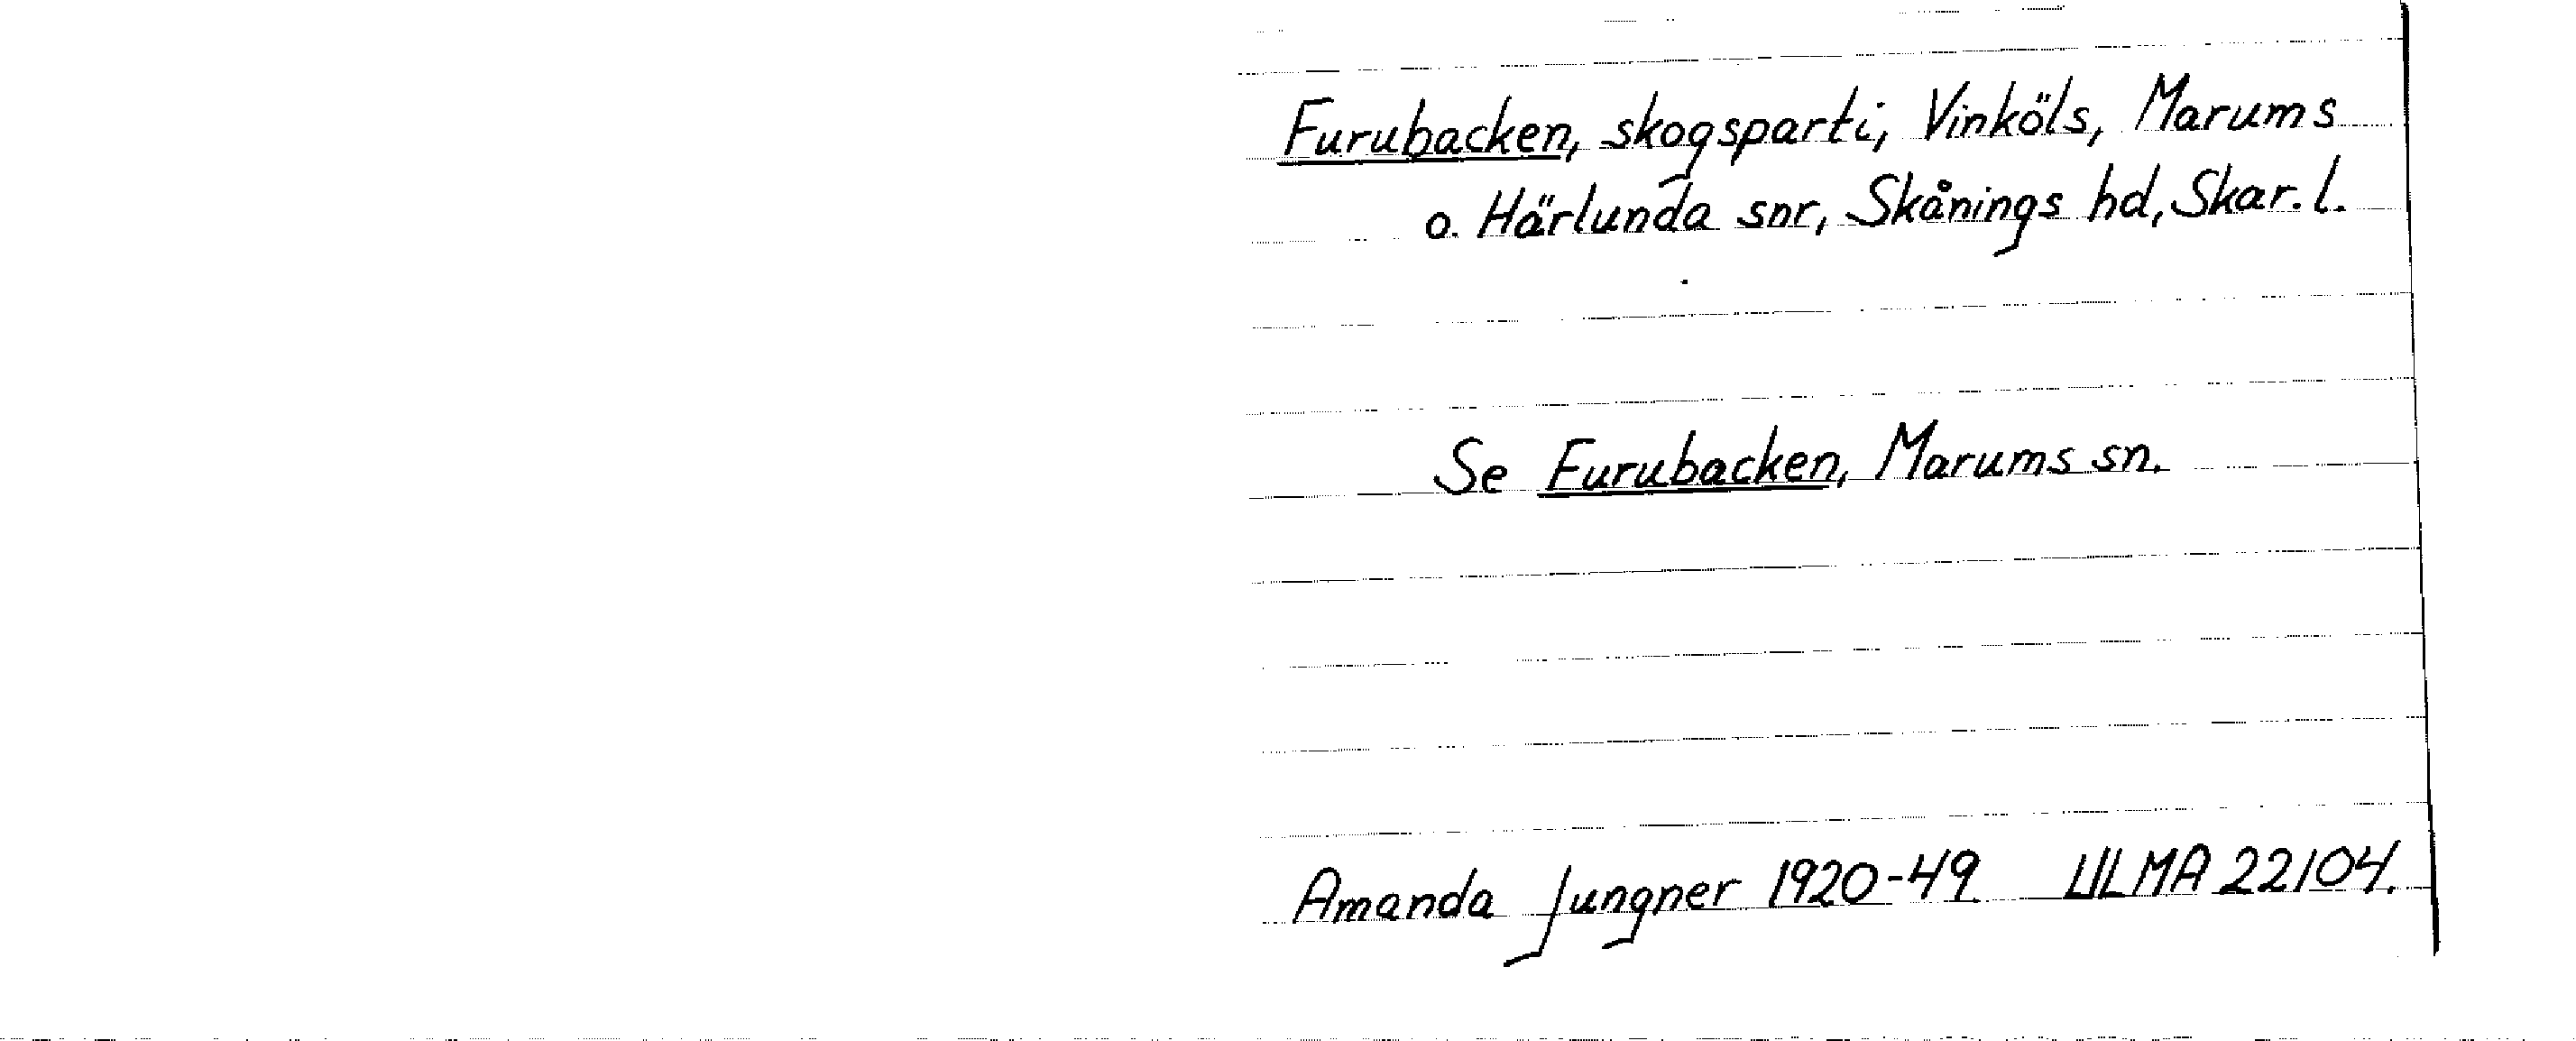 Furubacken, skogsparti, Vinköls, Marums
o. Härlunda snr, Skånings hd, Skar. l.
Se Furubacken, Marums sn.
Amanda Jungner 1920-49 ULMA 22104.